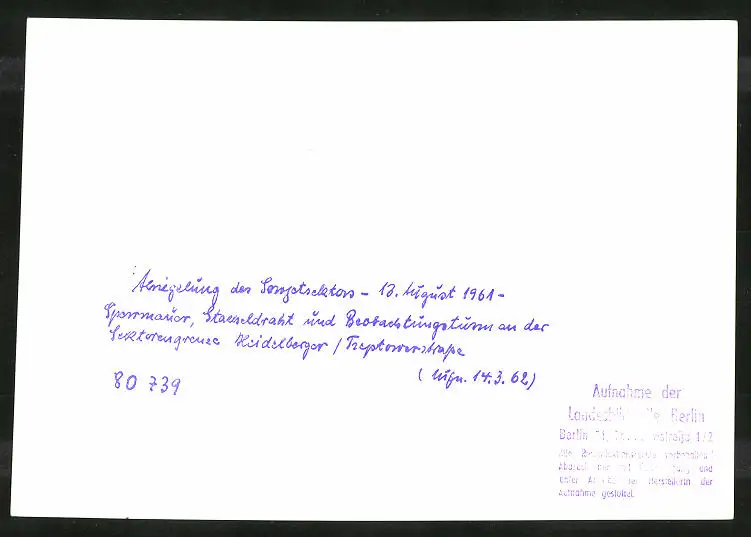 Abriegelung des Sowjetsektors – 13. August 1961 –
Sperrmauer, Stacheldraht und Beobachtungsturm an der
Sektorengrenze Heidelberger / Treptowerstraße
(Aufn. 14.3.62)
80 739
Aufnahme der
Berlin
Berlin 1/2
und
unter der Herstellerin der
Aufnahme gestattet.